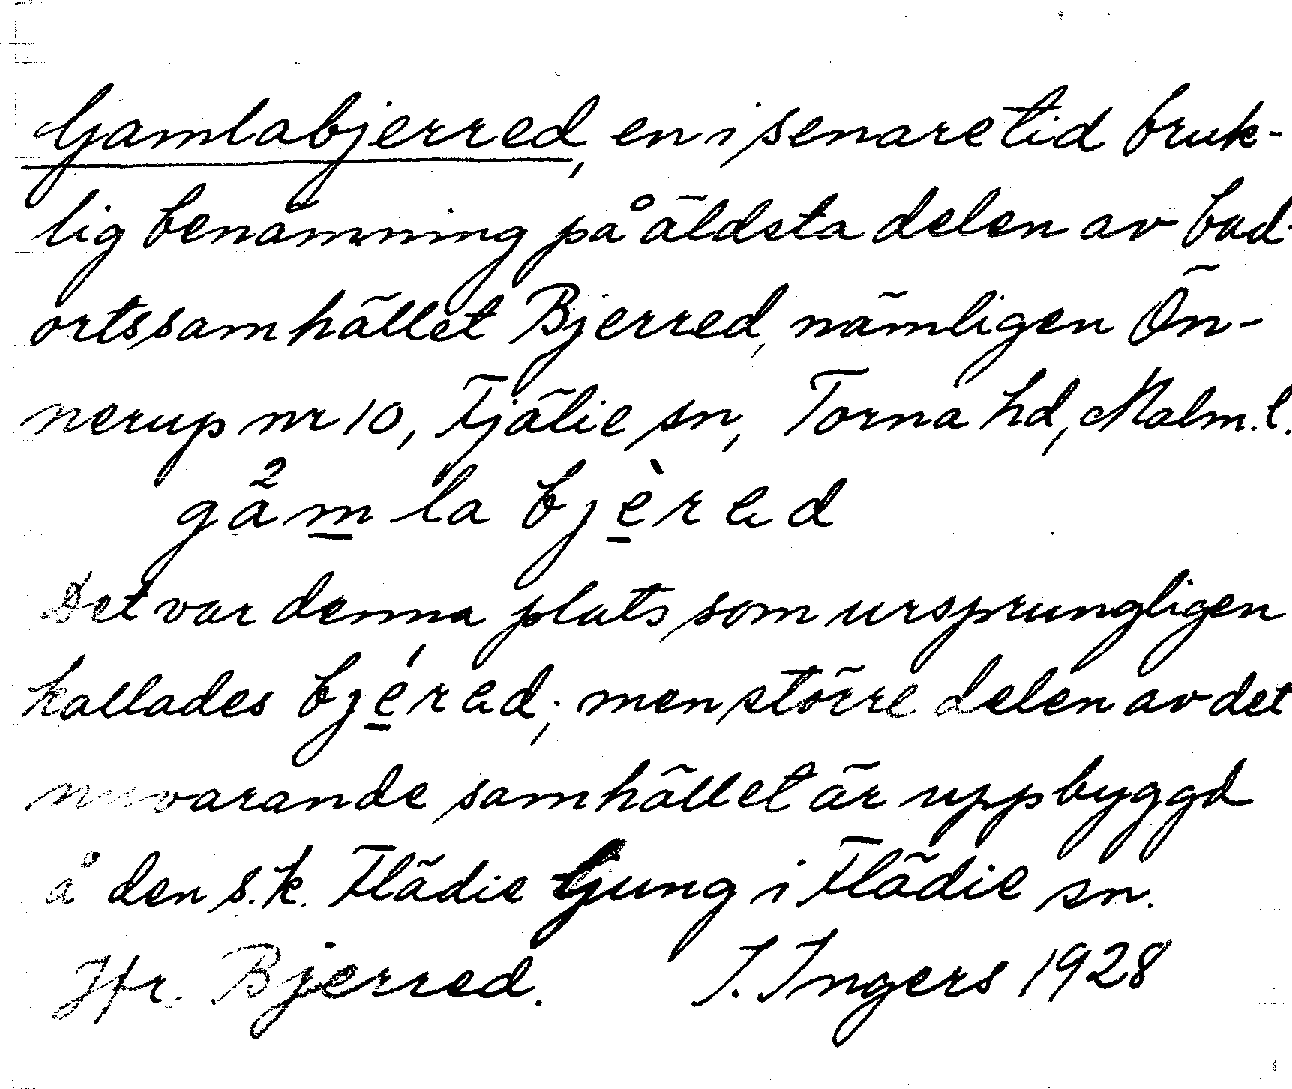 Gamlabjerred, en i senare tid bruk-
lig benämning på äldsta delen av bad-
ortssamhället Bjerred, nämligen Ön-
nerup nr 10, Fjälie sn, Torna hd, Malm. l.
gå²m̲la bjè̲rad
Det var denna plats som ursprungligen
kallades bjé̲rad; men större delen av det
nuvarande samhället är uppbyggd
å den s.k. Flädie Ljung i Flädie sn.
Jfr Bjerred. I. Ingers 1928